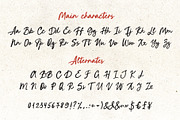 Main characters
Aa Bb Cc Dd Ee Ff Gg Hh Ii Jj Kk Ll Mm
Nn Oo Pp Qq Rr Ss Tt Uu Vv Ww Xx Yy Zz
Alternates
A B C D E F G H I J K L
M N O P Q R S T U V W X Y Z